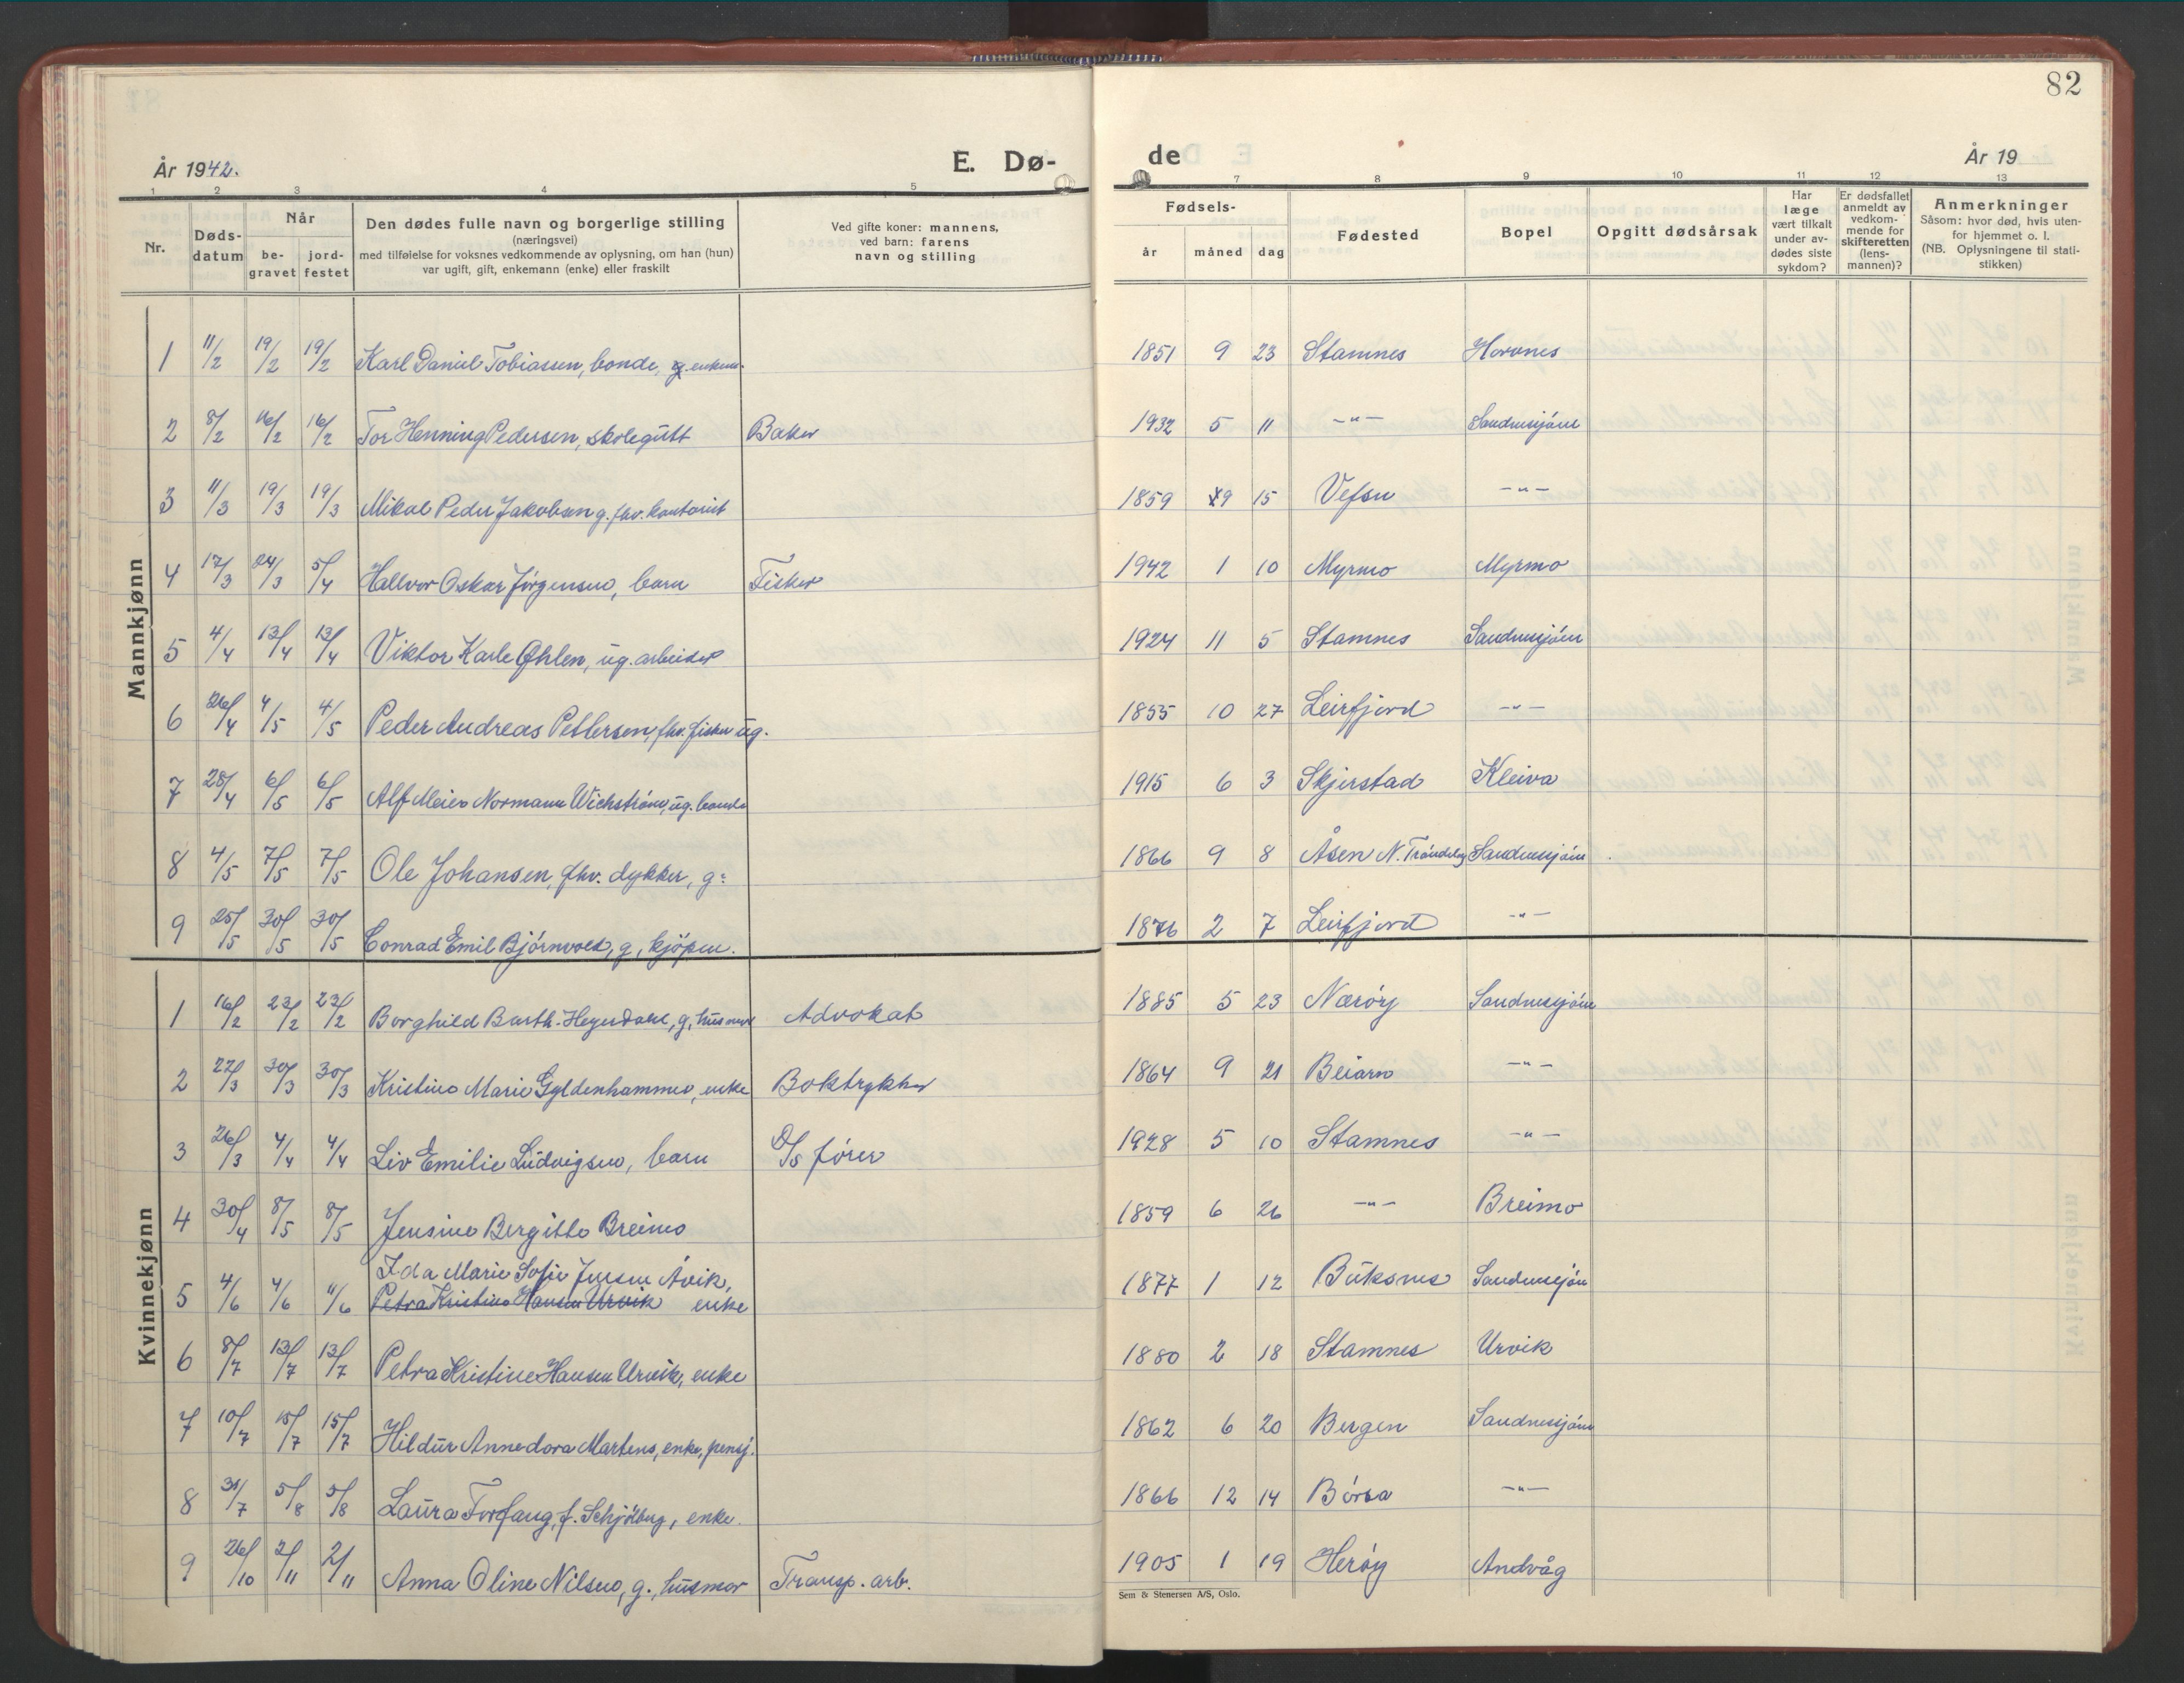 82
År 1942.
E. Dø-
de
År 19
1 2 3 4 5 7 8 9 10 11 12 13
Nr.
Døds-
datum
Når
be-
gravet
jord-
festet
Den dødes fulle navn og borgerlige stilling
(næringsvei)
med tilføielse for voksnes vedkommende av oplysning, om han (hun)
var ugift, gift, enkemann (enke) eller fraskilt
Ved gifte koner: mannens,
ved barn: farens
navn og stilling
Fødsels-
år måned dag
Fødested
Bopel
Opgitt dødsårsak
Har
læge
vært tilkalt
under av-
dødes siste
sykdom?
Er dødsfallet
anmeldt av
vedkom-
mende for
skifteretten
(lens-
mannen)?
Anmerkninger
Såsom: hvor død, hvis uten-
for hjemmet o. l.
(NB. Oplysningene til stati-
stikken)
Mannkjønn
1 11/2 19/2 19/2 Karl Daniel Tobiassen, bonde, enkem. 1851 9 23 Stamnes Horvnes
2 8/2 16/2 16/2 Tor Henning Pedersen, skolegutt Baker 1932 5 11 -"- Sandnessjøen
3 11/3 19/3 19/3 Mikal Peder Jakobsen g. fhv. kontorist 1859 9 15 Vefsn -"-
4 17/3 24/3 5/4 Hallvor Oskar Jörgensen, barn Fisker 1942 1 10 Myrmo Myrmo
5 4/4 13/4 13/4 Viktor Karle Øhlen, ug. arbeider 1924 11 5 Stamnes Sandnessjøen
6 26/4 4/5 4/5 Peder Andreas Pettersen, fhv. fisker ug. 1855 10 27 Leirfjord -"-
7 28/4 6/5 6/5 Alf Meier Normann Wichström, ug. bonde 1915 6 3 Skjerstad Kleiva
8 4/5 7/5 7/5 Ole Johansen, fhv. dykker, g: 1866 9 8 Åsen N. Tröndelag Sandnessjöen
9 25/5 30/5 30/5 Conrad Emil Björnvold, g, kjöpm. 1876 2 7 Leirfjord -"-
Kvinnekjønn
1 16/2 23/2 23/2 Borghild Barth-Heyerdahl, g, husmor Advokat 1885 5 23 Næröy Sandnessjöen
2 22/3 30/3 30/3 Kristine Marie Gyldenhammer, enke Boktrykker 1864 9 21 Beiarn -"-
3 26/3 4/4 4/4 Liv Emilie Ludvigsen, barn D/S förer 1928 5 10 Stamnes -"-
4 30/4 8/5 8/5 Jensine Bergitte Breimo 1859 6 26 -"- Breimo
Ida Marie Sofie Jensen Åvik,
5 4/6 4/6 11/6 Petra Kristine Hansen Urvik enke 1877 1 12 Buksnes Sandnessjöen
6 8/7 13/7 13/7 Petra Kristine Hansen Urvik, enke 1880 2 18 Stamnes Urvik
7 10/7 15/7 15/7 Hildur Annedora Martens, enke, pensj. 1862 6 20 Bergen Sandnessjöen
8 31/7 5/8 5/8 Laura Forfang, f. Schjölberg, enke. 1866 12 14 Börsa -"-
9 26/10 2/11 2/11 Anna Oline Nilsen, g., husmor Transp. arb. 1905 1 19 Heröy Andvåg
Sem & Stenersen A/S, Oslo.